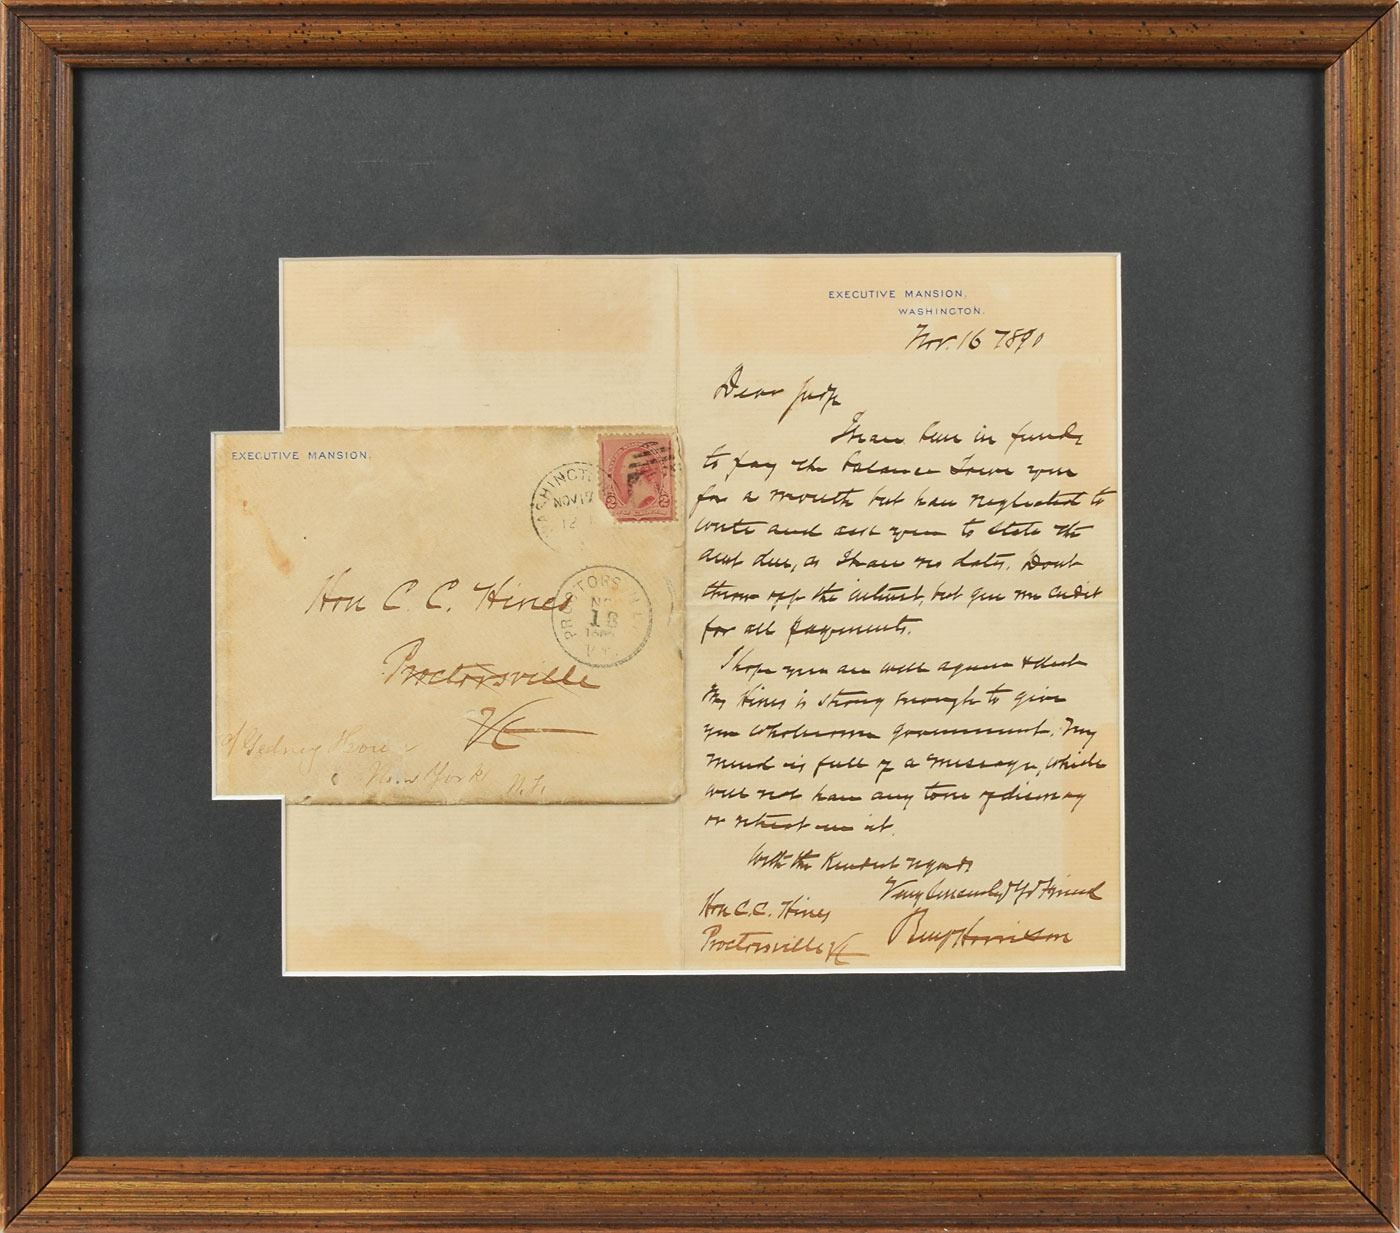 EXECUTIVE MANSION.
WASHINGTON.
Nov. 16 1890
Dear Judge
I have been in funds
to pay the balance I owe you
for a month but have neglected to
write and ask you to state the
amt due, as I have no dates. Dont
throw off the interest, but give me credit
for all payments.
I hope you are well again & that
Mrs Hines is strong enough to give
you wholesome government. My
mind is full of a message, which
will not have any tone of dismay
or retreat in it.
With the Kindest regards
Very Sincerely Yr Friend
Benj Harrison
Hon C.C. Hines
Proctorsville Vt
EXECUTIVE MANSION.
WASHINGT
NOV 17
12
2 2
PROCTORSVILLE
NO
18
VT.
Hon C. C. Hines
Proctorsville
Vt
Gedney House
New York N.Y.